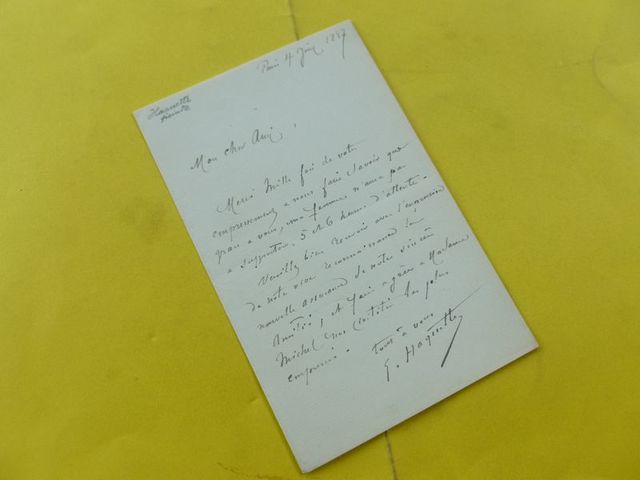 Haquette
peintre
Paris 4 Juin 1887
Mon cher Ami,
Merci Mille fois de votre
empressement a nous faire savoir que
grace a vous, ma femme n'aura pas
a supporter 5 et 6 heures d'attente.
Veuillez bien recevoir avec l'expression
de notre vive reconnaissance la
nouvelle assurance de notre sincère
Amitié, et faire agréer a Madame
Michel nos civilités les plus
empressées.
tout à vous
G. Haquette